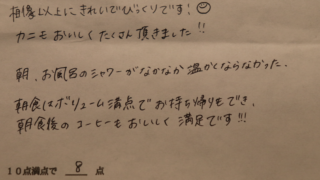 想像以上にきれいでびっくりです!
カニもおいしくたくさん頂きました!!
朝、お風呂のシャワーがなかなか温かくならなかった。
朝食はボリューム満点でお持ち帰りもでき、
朝食後のコーヒーもおいしく満足です!!!
10点満点で 8 点